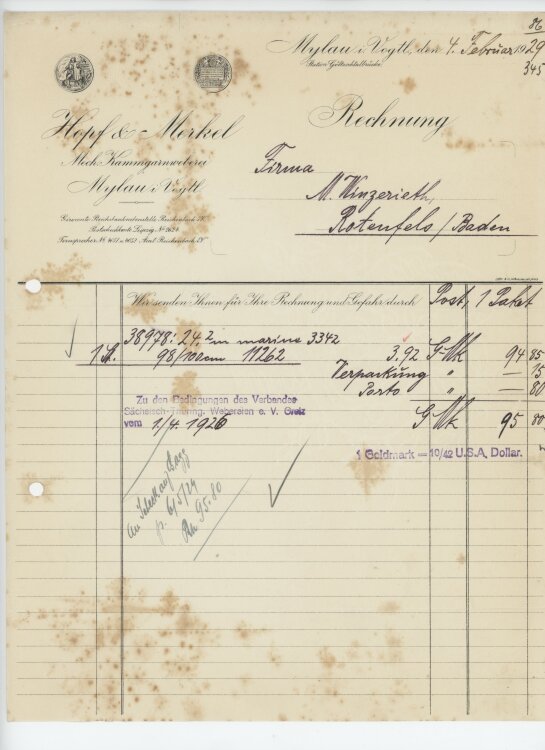 86
Mylau i. Vogtl., den 4. Februar 1929
Station Göltzschtalbrücke
345
Hopf & Merkel
Mech. Kammgarnweberei
Mylau i. Vogtl.
Rechnung
Firma
M. Winzerieth,
Rotenfels / Baden
Giroconto Reichsbanknebenstelle Reichenbach i. V.
Postscheckkonto Leipzig No
Fernsprecher No 4051 u. 4052 Amt Reichenbach i. V.
Wir senden Ihnen für Ihre Rechnung und Gefahr durch Post, 1 Paket
38978: 24,2 m marine 3342
1 St. 98/100 cm 11262 3.92 G-Mk 94 85
Verpackung " — 15
Porto " — 80
G Mk 95 80
Zu den Bedingungen des Verbandes
Sächsisch-Thüring. Webereien e. V. Greiz
vom 1/4. 1926
1 Goldmark = 10/42 U.S.A. Dollar.
p. 6/5/29
Rm 95.80